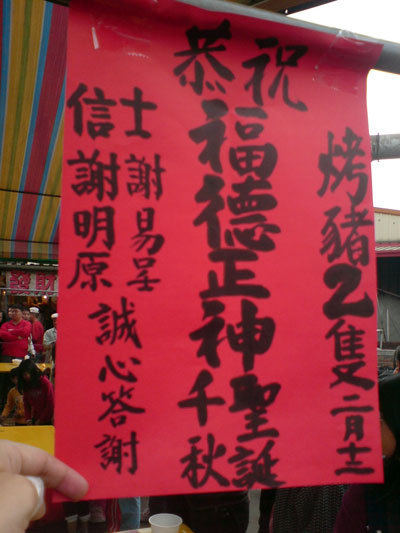 烤豬2隻
二月十二
恭祝
福德正神
聖誕
千秋
信士
謝易呈
謝明原
誠心答謝